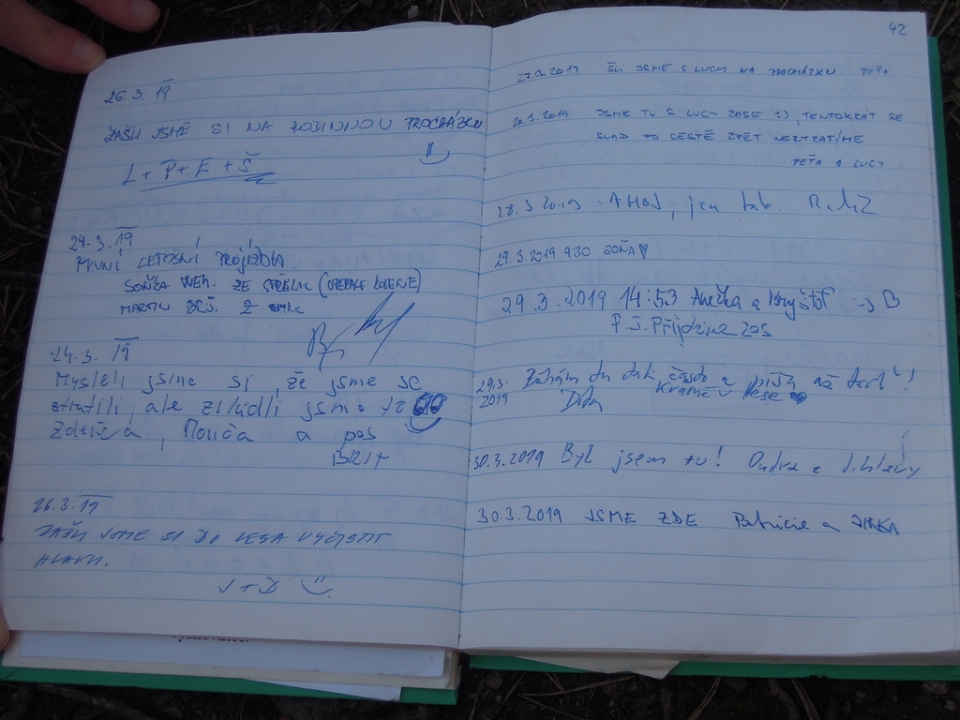 26.3.19
ZAŠLI JSME SI NA RODINNOU PROCHÁZKU
L + P + E + Š
24.3.19
PRVNÍ LETOŠNÍ PROJÍŽĎKA
ZE (OPERACE
MARTIN Z
24.3.19
Mysleli jsme si, že jsme se
ztratili, ale zvládli jsme to
Zdeňka, Monča a pes
BRIT
26.3.19
ZAŠLI JSME SI DO LESA VYČISTIT
HLAVU.
J+D
42
27.3.2019 ŠLI JSME S LUCY NA PROCHÁZKU PEŤA
28.3.2019 JSME TU S LUCY ZASE :) TENTOKRÁT SE
SNAD PO CESTĚ ZPĚT NEZTRATÍME
PEŤA A LUCY
28.3.2019 AHOJ, jen tak.
29.3.2019 930 SOŇA♥
29.3.2019 14:53 Anežka a Kryštof :-) B
P.S. Přijdeme zas
29.3. tu tak často a píšu
2019
30.3.2019 Byl jsem tu! Ondra z Jihlavy
30.3.2019 JSME ZDE Patricie a JIRKA